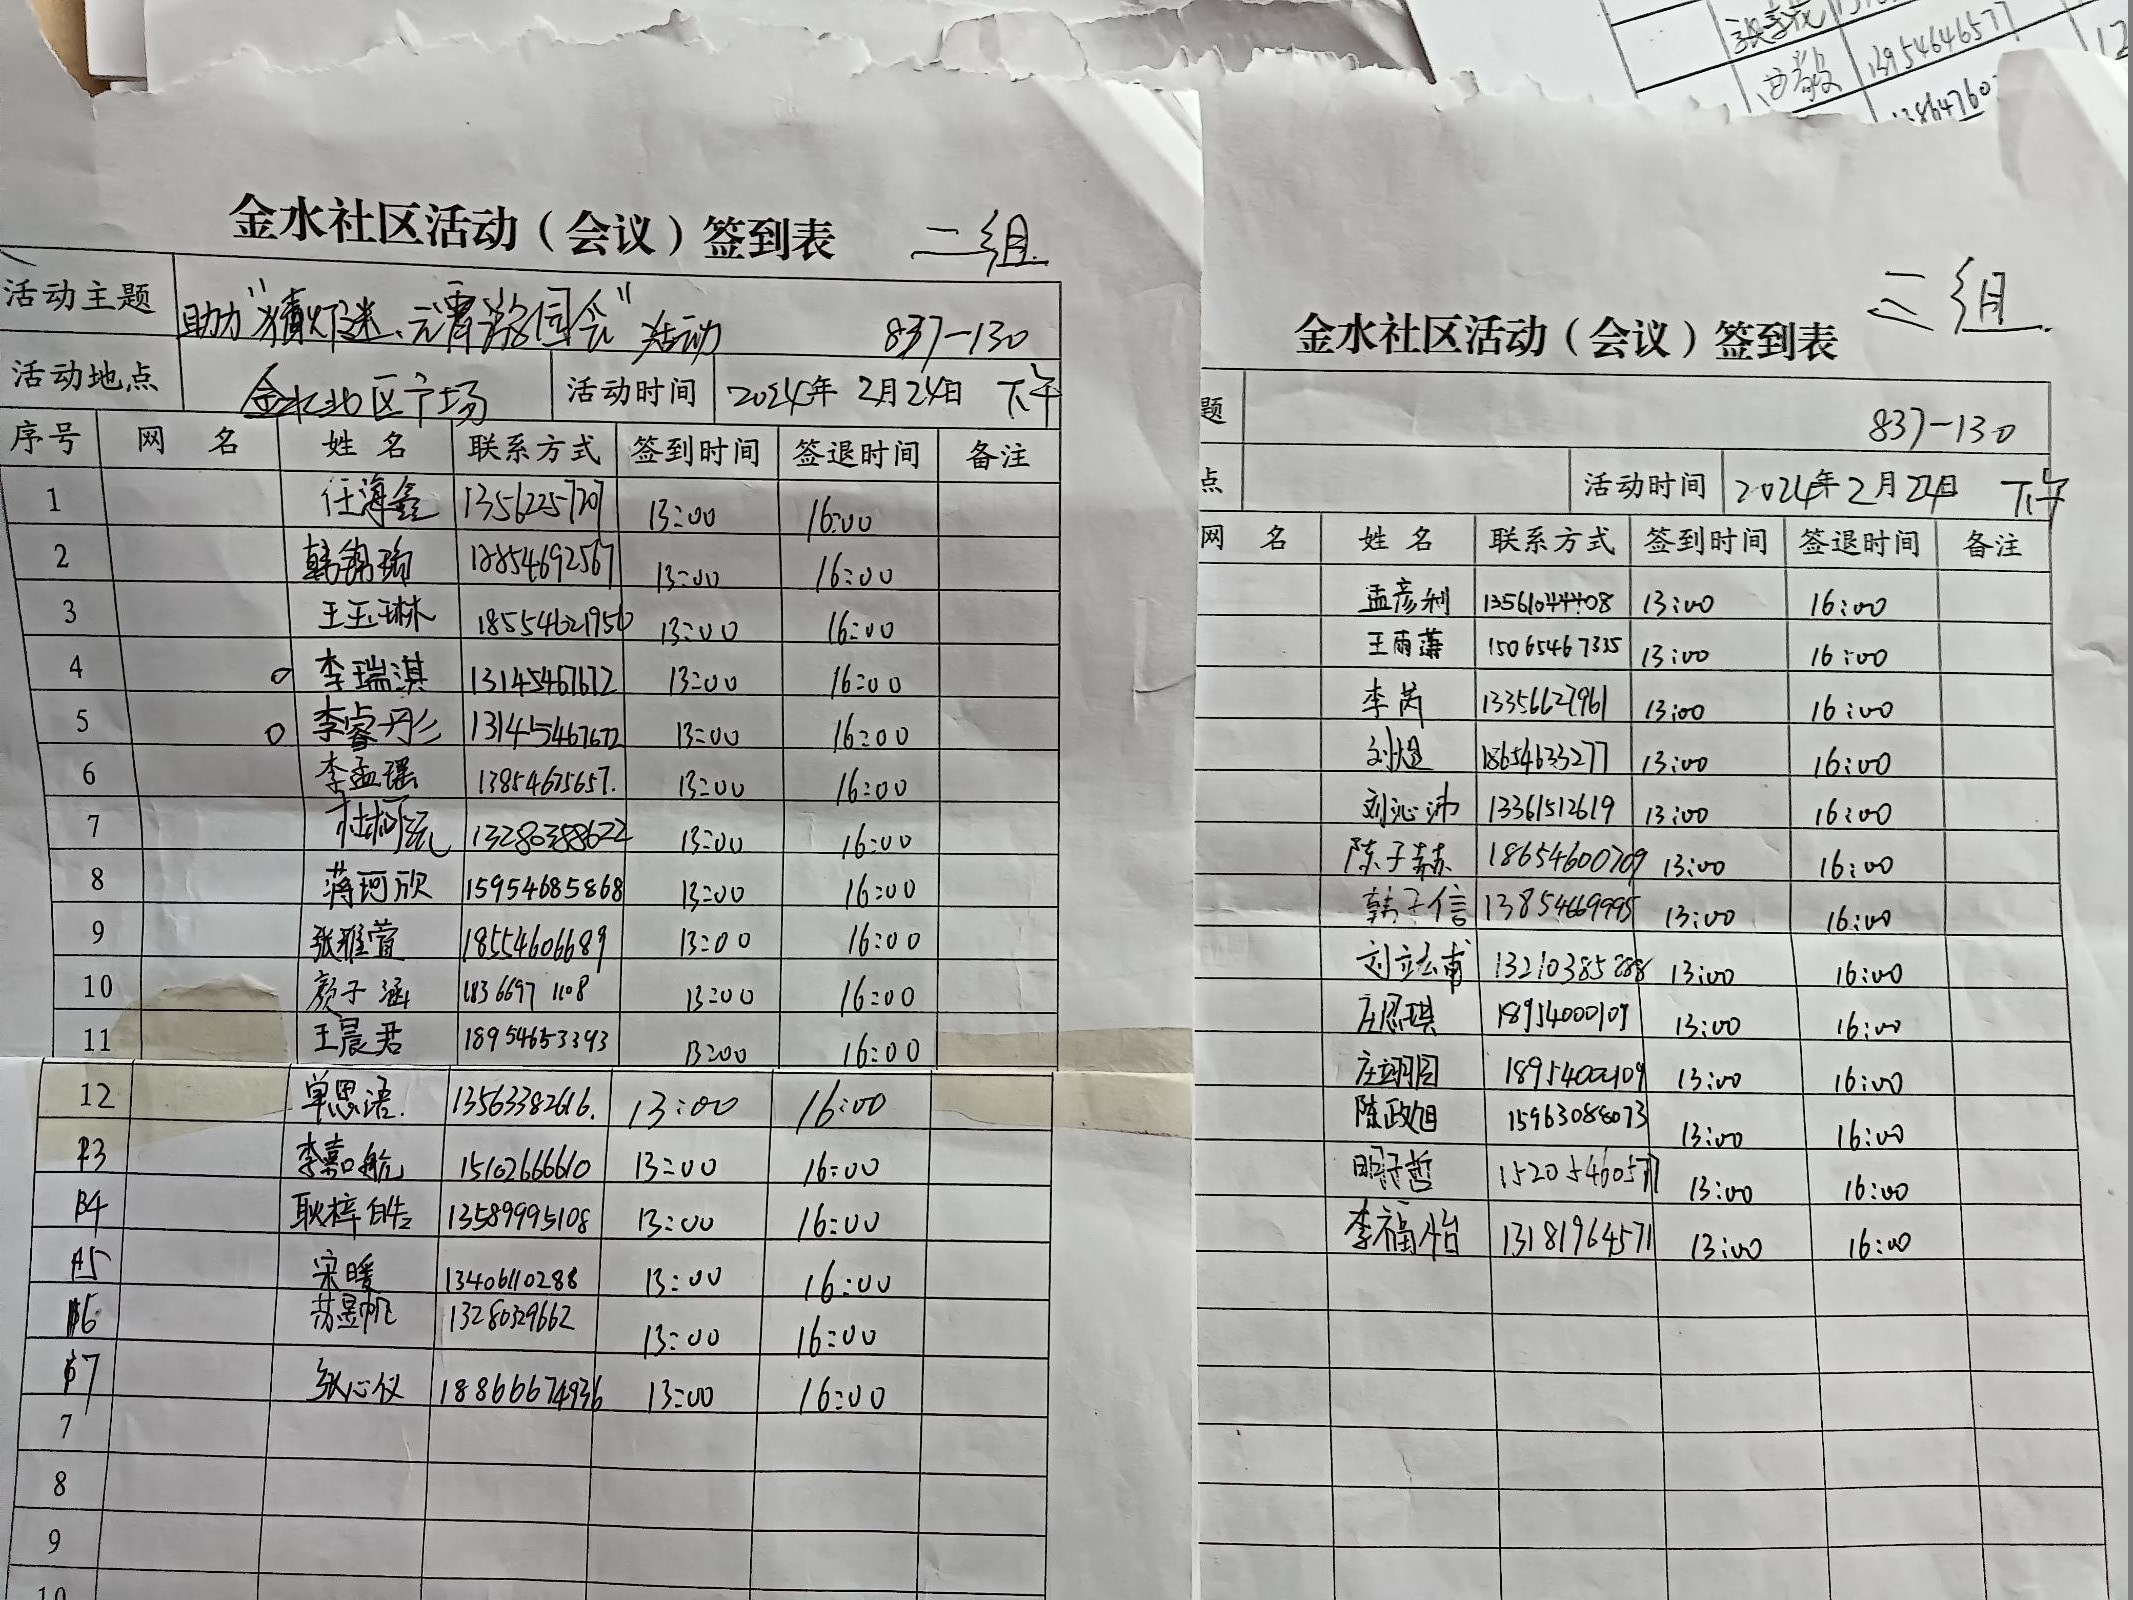 金水社区活动（会议）签到表 二组
活动主题 助力“猜灯谜、元宵游园会”活动 837-130
活动地点 金水社区广场 活动时间 2024年2月24日 下午
序号 网 名 姓 名 联系方式 签到时间 签退时间 备注
1 任海鑫 13562257207 13:00 16:00
2 韩锦瑞 18854692567 13:00 16:00
3 王玉琳 18554621956 13:00 16:00
4 李瑞淇 13145467672 13:00 16:00
5 李睿彤 13145467672 13:00 16:00
6 李孟瑶 13854675657. 13:00 16:00
7 13280388622 13:00 16:00
8 蒋珂欣 15954685868 13:00 16:00
9 张雅萱 18554606689 13:00 16:00
10 颜子涵 1836697 1108 13:00 16:00
11 王晨君 18954653393 13:00 16:00
12 单思语. 13563382616. 13:00 16:00
13 李嘉航 15102666610 13:00 16:00
14 耿梓皓 13589995108 13:00 16:00
15 宋暖 13406110288 13:00 16:00
16 苏昱帆 1328029662 13:00 16:00
17 张心仪 18866674936 13:00 16:00
7
8
9
10
三组
金水社区活动（会议）签到表
题 837-130
点 活动时间 2024年2月24日 下午
网 名 姓 名 联系方式 签到时间 签退时间 备注
孟彦利 13561044408 13:00 16:00
王雨薇 15065467335 13:00 16:00
李芮 13356627961 13:00 16:00
刘煜 18654633277 13:00 16:00
刘沁沛 13361512619 13:00 16:00
陈子赫 18654600709 13:00 16:00
韩子信 13854669995 13:00 16:00
刘立宏甫 13210385288 13:00 16:00
庄思琪 18954000109 13:00 16:00
庄翊同 18954000109 13:00 16:00
陈政旭 15963088073 13:00 16:00
明子哲 15205460577 13:00 16:00
李福怡 13181964571 13:00 16:00
13954646577